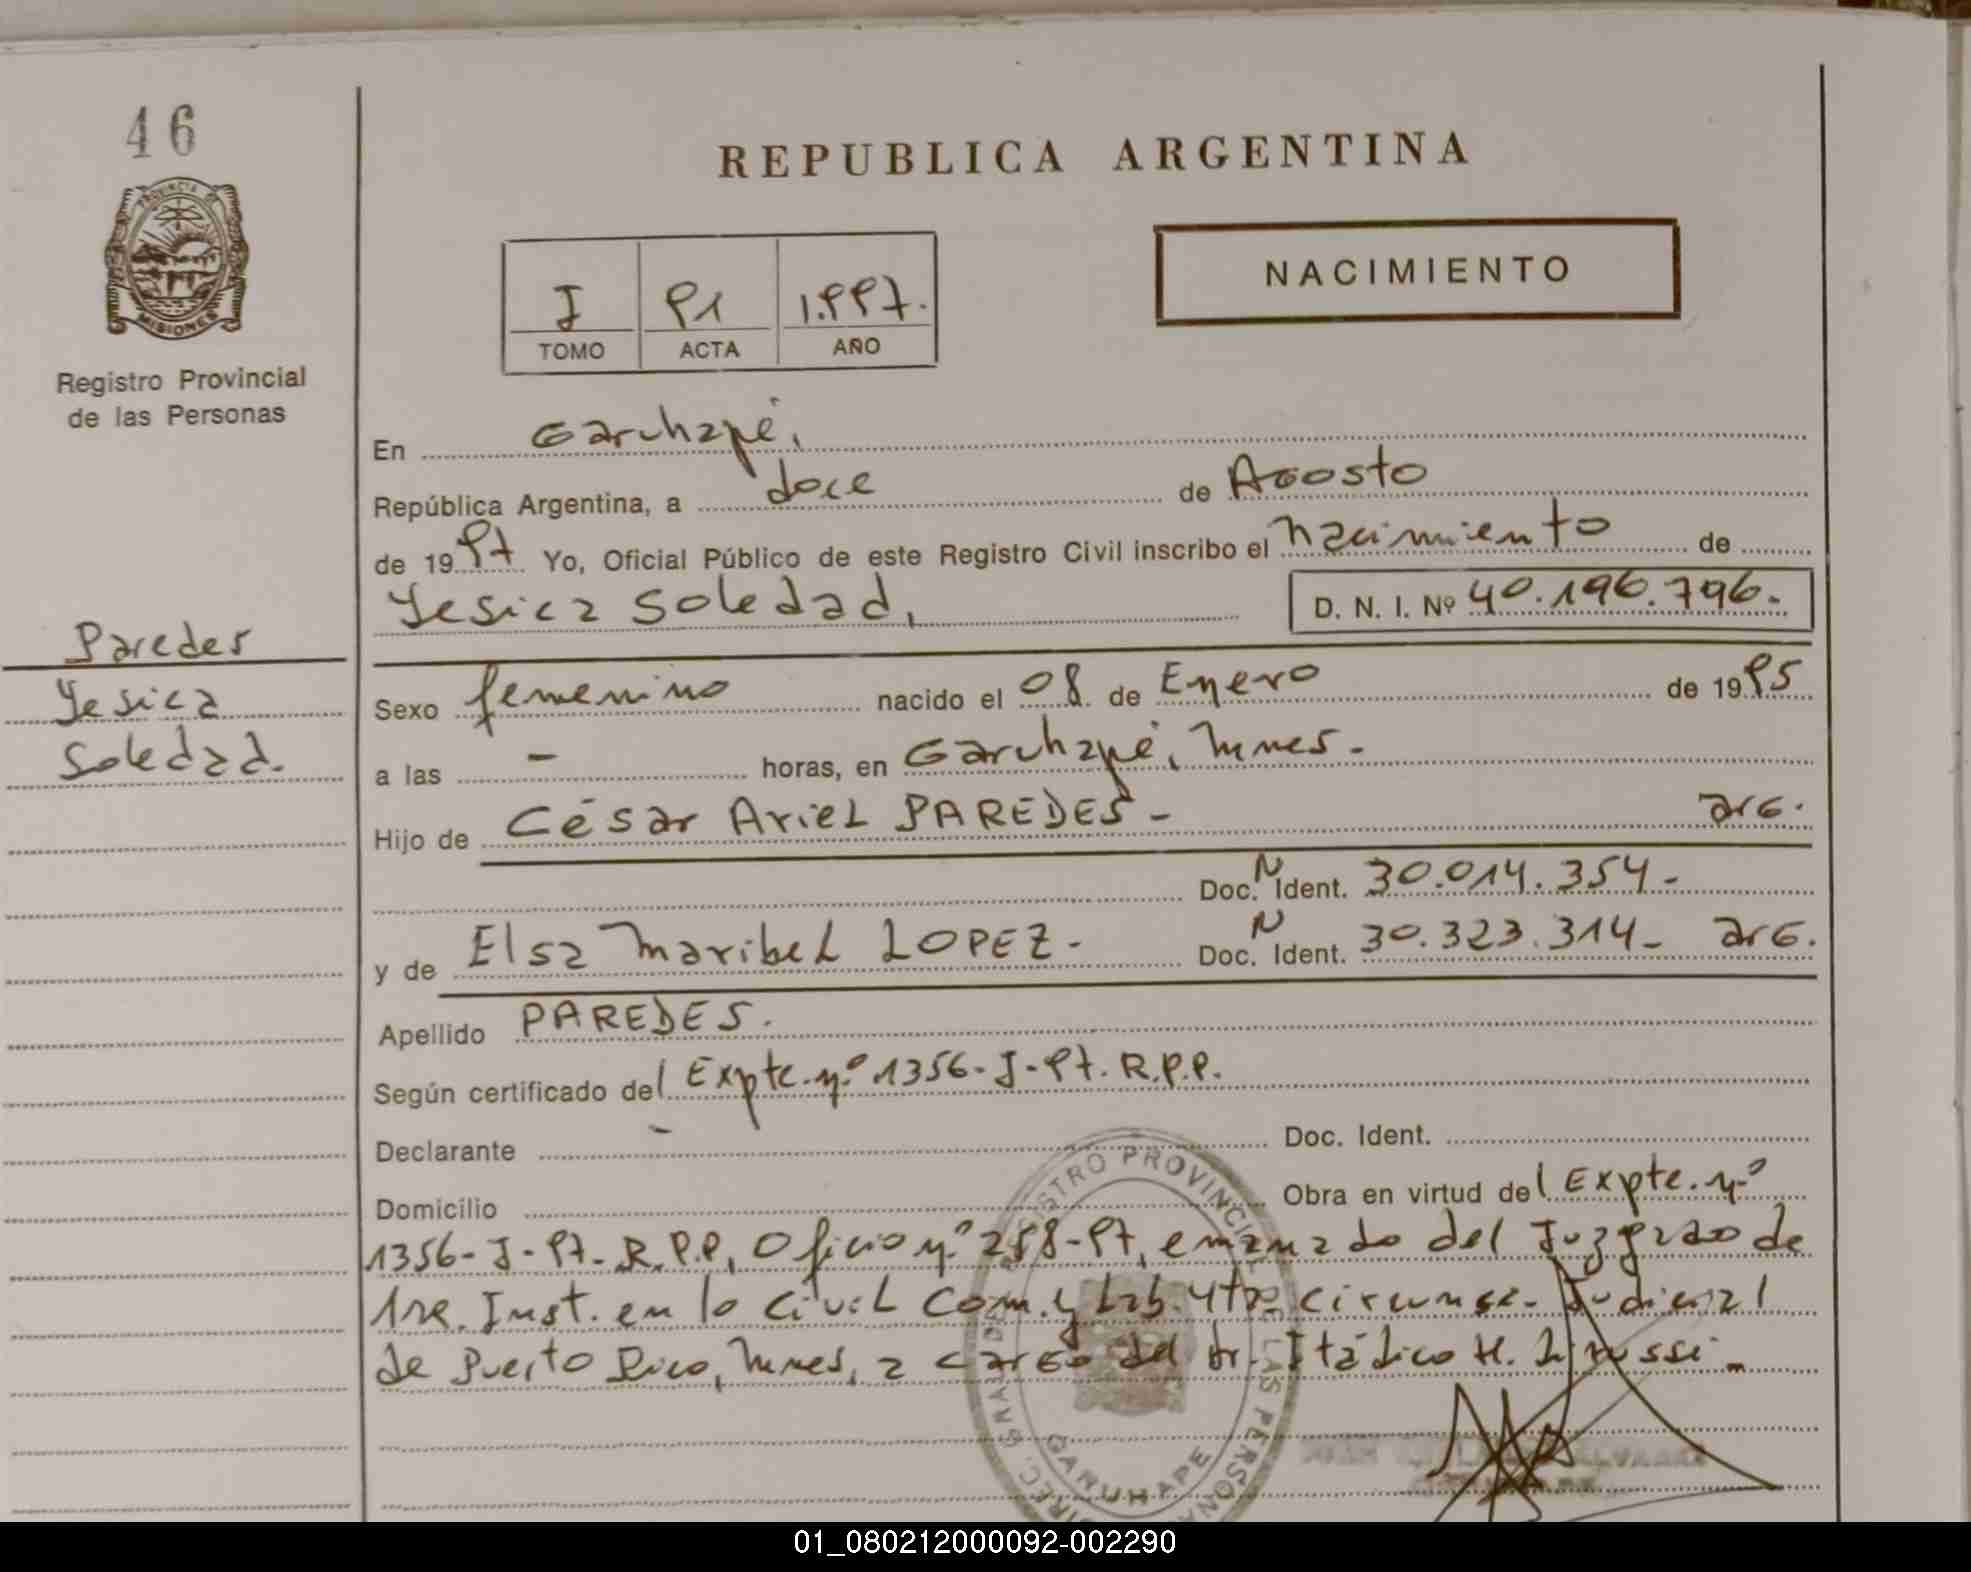 46
PROVINCIA DE
MISIONES
Registro Provincial
de las Personas
Paredes
Yesica
Soledad.
REPUBLICA ARGENTINA
NACIMIENTO
I 91 1.997.
TOMO ACTA AÑO
En Garuhapé,
República Argentina, a doce de Agosto
de 1997 Yo, Oficial Público de este Registro Civil inscribo el nacimiento de
Yesica Soledad, D. N. I. Nº 40.196.796.-
Sexo femenino nacido el 08 de Enero de 1995
a las - horas, en Garuhapé, Mnes.-
Hijo de César Ariel PAREDES- arg.
Doc. N Ident. 30.014.354-
y de Elsa Maribel LOPEZ- Doc. N Ident. 30.323.314- arg.
Apellido PAREDES.
Según certificado del Expte. nº 1356-J-97. R.P.P.
Declarante - Doc. Ident.
Domicilio Obra en virtud del Expte. nº
1356-J-97-R.P.P, Oficio nº 258-97, emanado del Juzgado de
1ra. Inst. en lo Civil Com. y Lab. 4ta. circunsc. Judicial
de Puerto Rico, Mnes, a cargo del Dr. H.
REGISTRO PROVINCIAL DE LAS PERSONAS
GARUHAPE
01_080212000092-002290